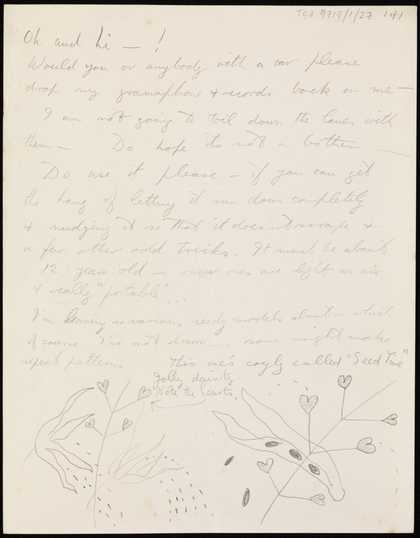 TGA 9719/1/27 1 of 1
Oh and hi — !
Would you or anybody with a car please
drop my gramophone & records back on me —
I am not going to toil down the lanes with
them — Do hope its not a bother —
Do use it please — if you can get
the hang of letting it run down completely
& nudging it so that it doesn't scrape &
a few other odd tricks. It must be about
12 years old — new ones are light as air
& really "potable"...
I'm leaving various seedy models about — what
of course I've not drawn ... some might make
repeat patterns. This one's coyly called "Seed Time"
Jolly dainty
Note the hearts.